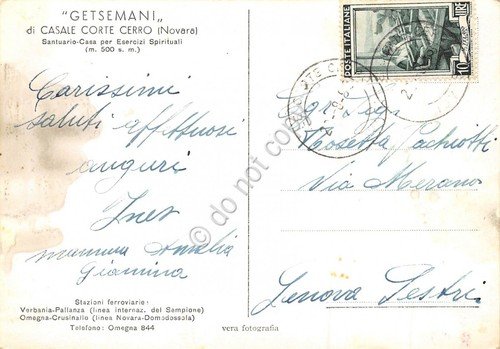 "GETSEMANI"
di CASALE CORTE CERRO (Novara)
Santuario-Casa per Esercizi Spirituali
(m. 500 s. m.)
Carissimi
saluti affettuosi
auguri
Ines
mamma Amelia
Giannina
Stazioni ferroviarie:
Verbania-Pallanza (linea internaz. del Sempione)
Omegna-Crusinallo (linea Novara-Domodossola)
Telefono: Omegna 844
vera fotografia
POSTE ITALIANE
LIRE
10
Rosetta Pachiotti
Via Merano
Genova Sestri
© do not copy